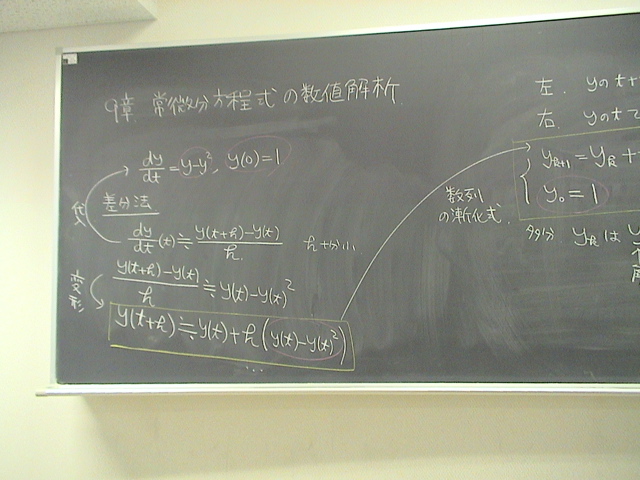 9章 常微分方程式の数値解析
dy/dt = y-y², y(0)=1
代入
差分法
dy/dt (t) ≒ (y(t+h)-y(t))/h h十分小
変形
(y(t+h)-y(t))/h ≒ y(t)-y(t)²
y(t+h) ≒ y(t)+h(y(t)-y(t)²)
...
数列
の漸化式
左. yのt+
右. yのtで
y_{k+1} = y_k +
y_0 = 1
多分 y_k は